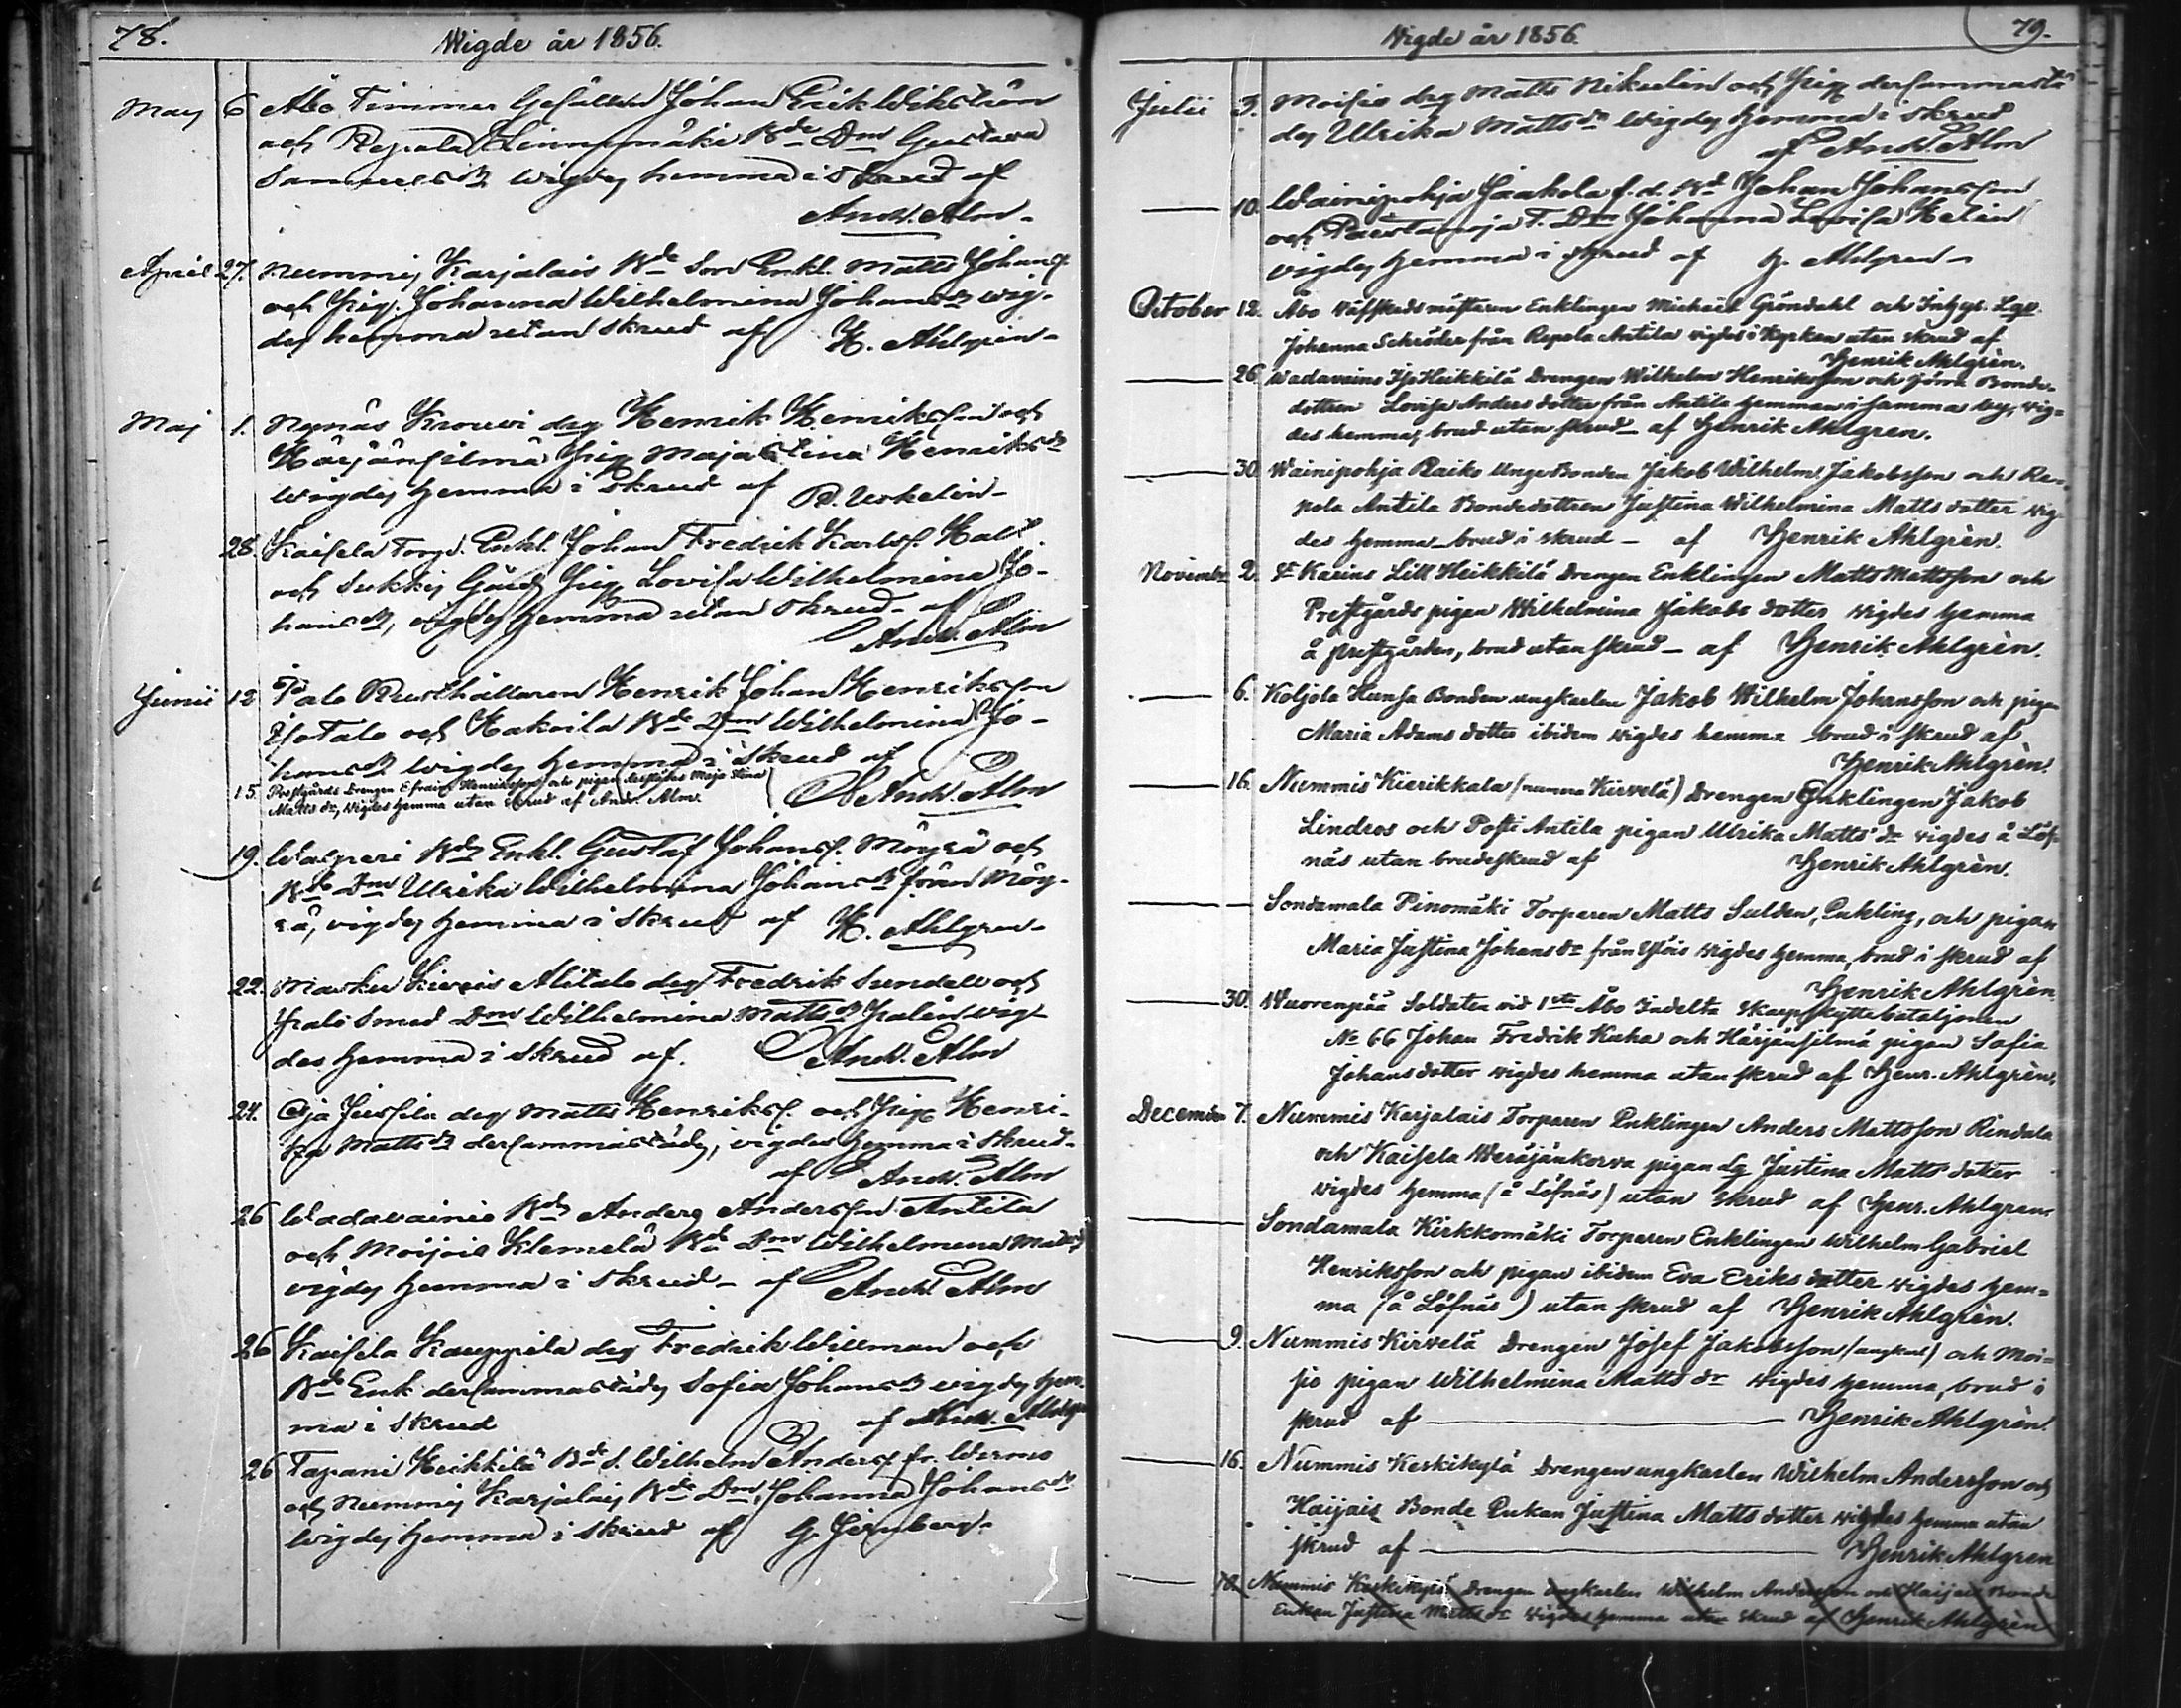 78.
Wigde år 1856.
May 6 Åbo Timmer Gesällen Johan Erik Wikström
och Repola Linnunmäki Bde Dotr Gustava
Samuelsdr wigdes hemma i Skrud af
Andr. Alm
April 27. Nummis Karjalais Bde Son Enkl. Matts Johansf.
och Pig. Johanna Wilhelmina Johansdr wig-
des hemma utan skrud af H. Ahlgren
Maj 1. Nynäs Krouvi drg Henrik Henriksson och
Härjänsilmä Pig. Maja Stina Henriksdr
Wigdes hemma i Skrud af
28. Kaisela Torp. Enkl. Johan Fredrik Karlsf. Hall
och Sukkis Gård Pig. Lovisa Wilhelmina Jo-
hansdr, wigdes hemma utan Skrud af
Andr. Alm
Junii 12 Talo Rusthållaren Henrik Johan Henriksson
IsoTalo och Kakoila Bde Dotr Wilhelmina Jo-
hansdr wigdes hemma i Skrud af
Andr. Alm
15. Prestgårds Drengen Efraim Henriksson och pigan Maja Stina
Matts dr, wigdes hemma utan skrud af Andr. Alm.
19. Bdn Enkl. Gustaf Johansf. Möyrä och
Bde Dotr Ulrika Wilhelmina Johansdr från Möy-
rä, vigdes hemma i Skrud af H. Ahlgren
22. Masku Alitalo drg Fredrik Sundell och
Smed Dotr Wilhelmina Mattsdr wig-
des hemma i Skrud af. Andr. Alm
24. Oja Jussila drg Matts Henriksf. och Pig. Henri-
ka Mattsdr dersammastädes, vigdes hemma i Skrud
af Andr. Alm
26 Wadavainio Bdn Anders Andersson Antila
och Moijois Klemelä Bde Dotr Wilhelmina
vigdes hemma i Skrud af Andr. Alm
26 Kaisela Kauppila drg Fredrik Willman och
Bde Enk. dersammastädes Sofia Johansdr vigdes hem-
ma i Skrud af
26 Tapani Heikkilä Bde S. Wilhelm Andersf. fr. Wirmo
och Nummis Karjalais Bde Dotr Johanna Johansdr
Wigdes hemma i Skrud af G.
Wigde år 1856.
79.
Julii 3. Moisio drg Matts Nikulin och Pig. dersammastä-
des Ulrika Mattsdr wigdes hemma i skrud
af Andr. Alm
10. Wainionpohja Jaakola f.d. Bd Johan Johansson
och T. Dotr Johanna Lovisa Helin
vigdes hemma i skrud af H. Ahlgren
October 12. Åbo Enklingen Michaël Gröndahl och
Johanna Schröder från Repola Antila vigdes i Kyrkan utan skrud af
Henrik Ahlgrèn.
26. Wadavains Iso Heikkilä Drengen Wilhelm Henriksson och Bonde-
dottren Lovisa Anders dotter från Antila hemman i samma by, vig-
des hemma, brud utan skrud af Henrik Ahlgren.
30. Wainionpohja Raiko Unge Bonden Jakob Wilhelm Jakobsson och Re-
pola Antila Bondedottren Justina Wilhelmina Matts dotter vig-
des hemma brud i skrud af Henrik Ahlgrèn.
November 2. Karins Lill Heikkilä Drengen Enklingen Matts Mattsson och
Prestgårds pigan Wilhelmina Jakobs dotter vigdes hemma
å prestgården, brud utan skrud af Henrik Ahlgrèn.
6. Koljola Hansa Bonden ungkarlen Jakob Wilhelm Johansson och pigan
Maria Adams dotter ibidem vigdes hemma brud i skrud af
Henrik Ahlgrèn.
16. Nummis Kierikkala (numera Kirvelä) Drengen Enklingen Jakob
Lindros och Posti Antila pigan Ulrika Matts dr vigdes å Löf-
näs utan brudeskrud af Henrik Ahlgrèn.
Sondamala Pinomäki Torparen Matts Sulden, Enkling, och pigan
Maria Justina Johans dr från Ylöis vigdes hemma, brud i skrud af
Henrik Ahlgrèn
30. Wuorenpää Soldaten vid 1sta Åbo Indelta Skarpskyttebataljonen
No 66 Johan Fredrik Kuha och Härjänsilmä pigan Sofia
Johans dotter vigdes hemma utan skrud af Henr. Ahlgrèn.
December 7. Nummis Karjalais Torparen Enklingen Anders Mattsson Rindala
och Kaisela Weräjänkorva pigan Justina Matts dotter
vigdes hemma (å Löfnäs) utan skrud af Henr. Ahlgren
Sondamala Kirkkomäki Torparen Enklingen Wilhelm Gabriel
Henriksson och pigan ibidem Eva Eriks dotter vigdes hem-
ma (å Löfnäs) utan skrud af Henrik Ahlgrèn.
9. Nummis Kirvelä Drengen Josef Jakobsson (ungkarl) och Moi-
sio pigan Wilhelmina Matts dr vigdes hemma, brud i
skrud af Henrik Ahlgrèn.
16. Nummis Keskikylä Drengen ungkarlen Wilhelm Andersson och
Haijais Bonde Enkan Justina Matts dotter vigdes hemma utan
skrud af Henrik Ahlgren
Nummis Keskikylä Drengen ungkarlen Wilhelm Andersson och Haijais Bonde
Enkan Justina Matts dr vigdes hemma utan skrud af Henrik Ahlgrèn